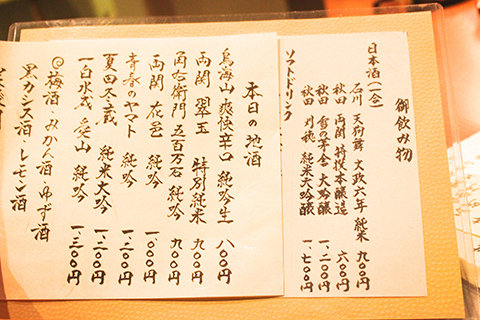 御飲み物
日本酒(一合)
石川 天狗舞 文政六年 純米 九〇〇円
秋田 両関 特撰本醸造 六〇〇円
秋田 雪の茅舎 大吟醸 一、二〇〇円
秋田 刈穂 純米大吟醸 一、七〇〇円
ソフトドリンク
本日の地酒
鳥海山 爽快辛口 純吟生 八〇〇円
両関 翠玉 特別純米 九〇〇円
角右衛門 五百万石 純吟 九〇〇円
両関 花邑 純吟 一、〇〇〇円
青春のヤマト 純吟 一、二〇〇円
夏田冬蔵 純米大吟 一、二〇〇円
一白水成 愛山 純吟 一、三〇〇円
梅酒・みかん酒・ゆず酒
黒カシス酒・レモン酒